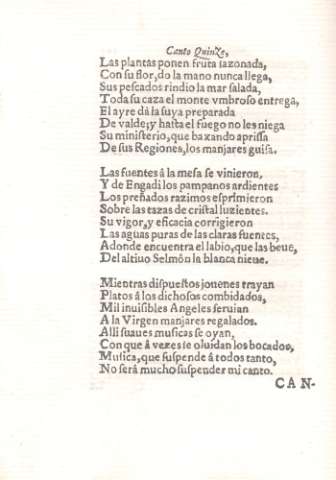 Canto Quinze,
Las plantas ponen fruta sazonada,
Con su flor, do la mano nunca llega,
Sus pescados rindio la mar salada,
Toda su caza el monte vmbroso entrega,
El ayre dâ la suya preparada
De valde; y hasta el fuego no les niega
Su ministerio, que baxando aprissa
De sus Regiones, los manjares guisa.
Las fuentes â la mesa se vinieron,
Y de Engadi los pampanos ardientes
Los preñados razimos esprimieron
Sobre las tazas de cristal luzientes.
Su vigor, y eficacia corrigieron
Las aguas puras de las claras fuentes,
Adonde encuentra el labio, que las beue,
Del altiuo Selmôn la blanca nieue.
Mientras dispuestos jouenes trayan
Platos â los dichosos combidados,
Mil inuisibles Angeles seruian
A la Virgen manjares regalados.
Alli suaues musicas se oyan,
Con que â vezes se oluidan los bocados,
Musica, que suspende â todos tanto,
No serâ mucho suspender mi canto.
CAN-